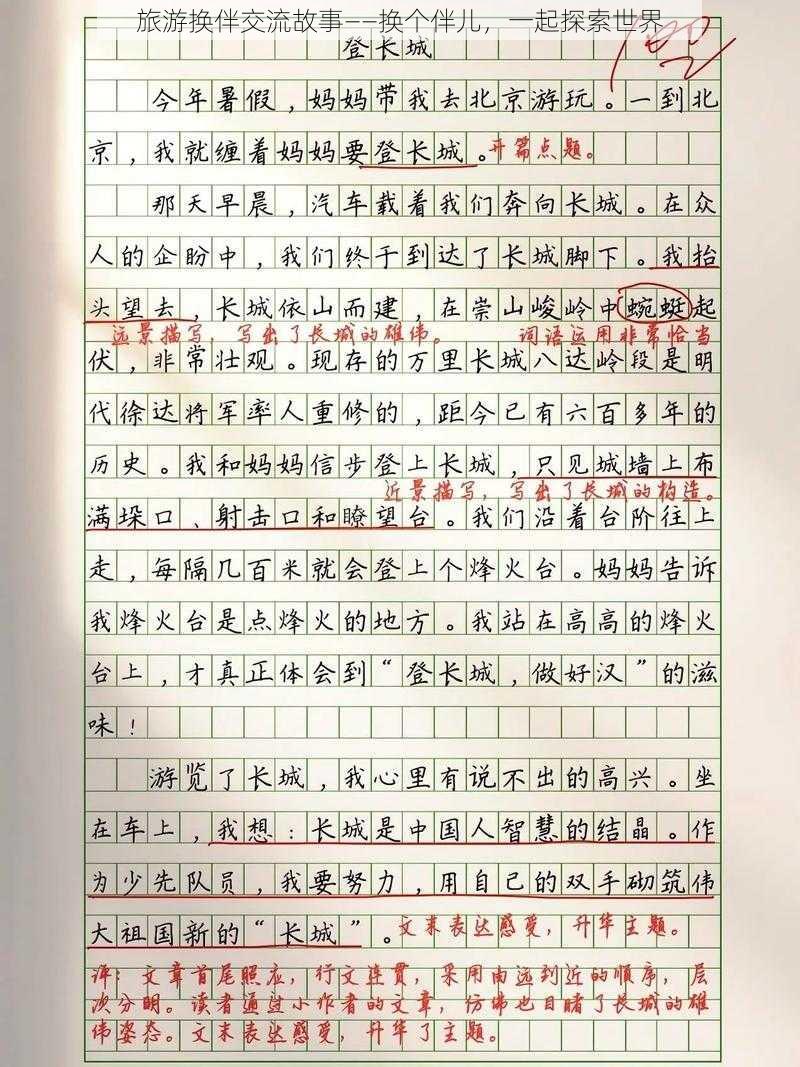 旅游换伴交流故事——换个伴儿，一起探索世界
登长城
今年暑假，妈妈带我去北京游玩。一到北
京，我就缠着妈妈要登长城。开篇点题。
那天早晨，汽车载着我们奔向长城。在众
人的企盼中，我们终于到达了长城脚下。我抬
头望去，长城依山而建，在崇山峻岭中蜿蜒起
远景描写，写出了长城的雄伟。 词语运用非常恰当
伏，非常壮观。现存的万里长城八达岭段是明
代徐达将军率人重修的，距今已有六百多年的
历史。我和妈妈信步登上长城，只见城墙上布
近景描写，写出了长城的构造。
满垛口、射击口和瞭望台。我们沿着台阶往上
走，每隔几百米就会登上个烽火台。妈妈告诉
我烽火台是点烽火的地方。我站在高高的烽火
台上，才真正体会到“登长城，做好汉”的滋
味！
游览了长城，我心里有说不出的高兴。坐
在车上，我想：长城是中国人智慧的结晶。作
为少先队员，我要努力，用自己的双手砌筑伟
大祖国新的“长城”。文末表达感受，升华主题。
评：文章首尾照应，行文连贯，采用由远到近的顺序，层
次分明。读者通过小作者的文章，仿佛也目睹了长城的雄
伟姿态。文末表达感受，升华了主题。